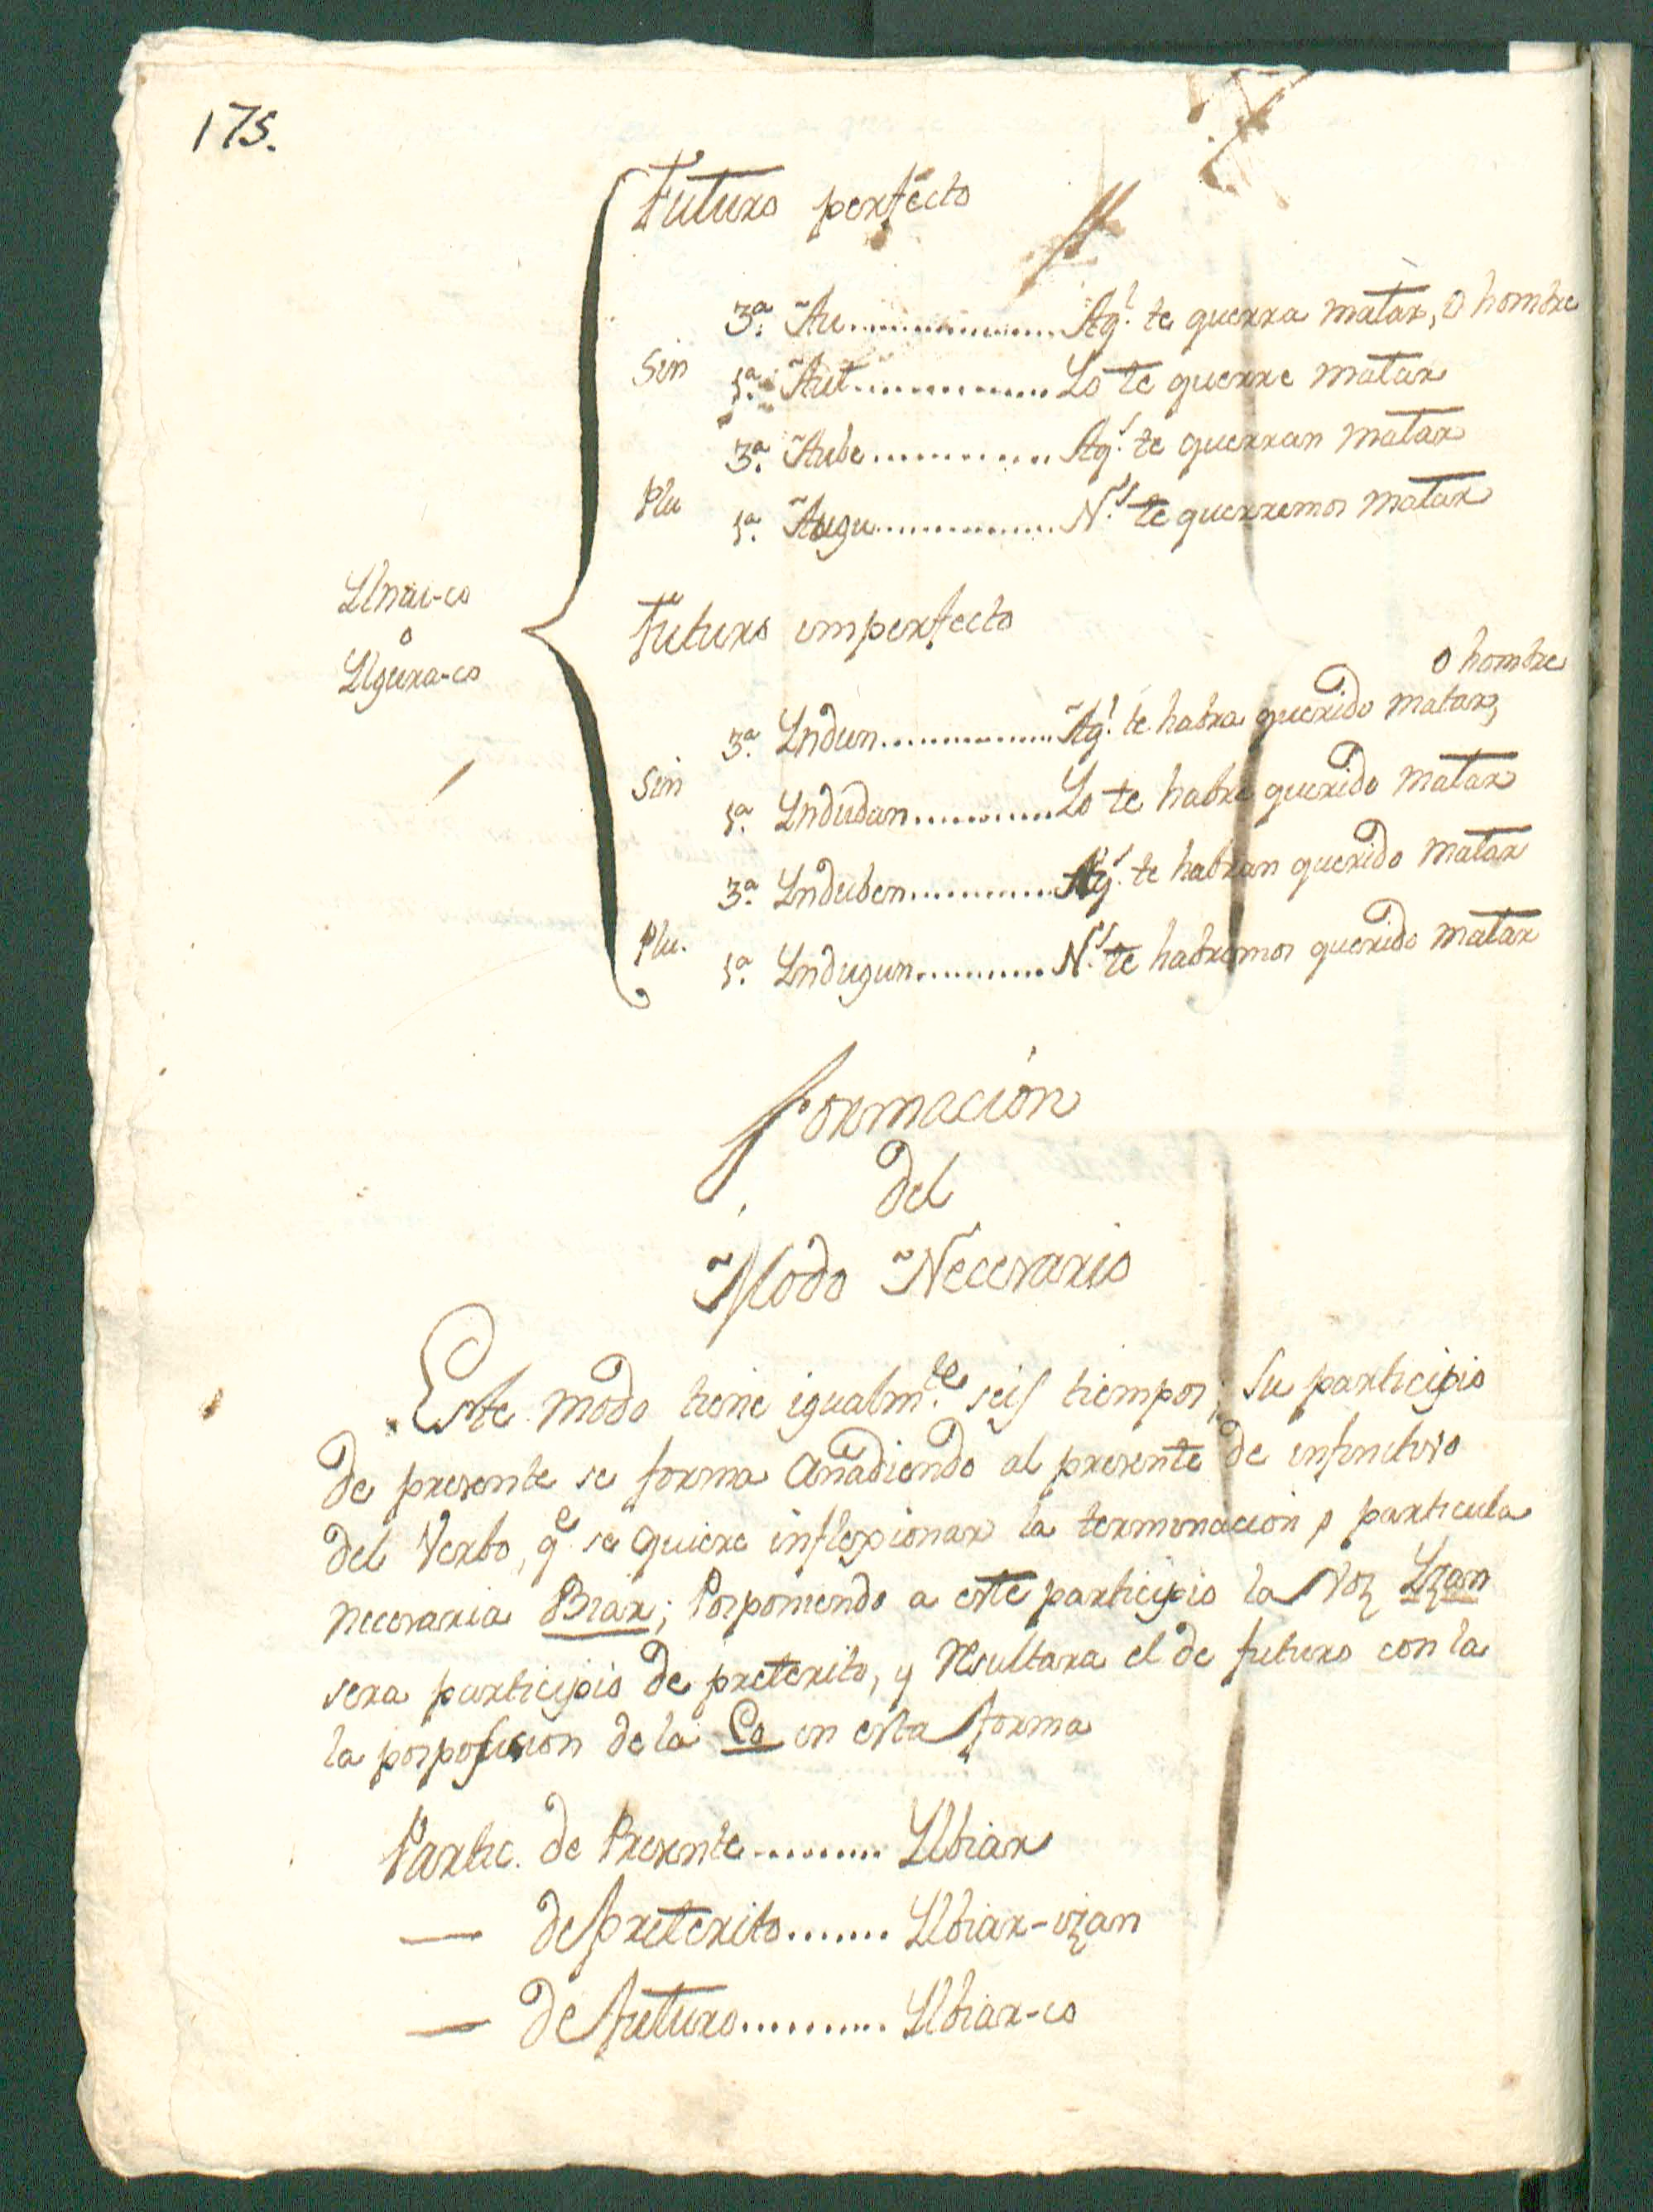 175.
Futuro perfecto
3ª. Au.................Aqˡ. te querra matar, o hombre
Sin 1ª. Aut................Yo te querre matar
3ª. Aube..............Aqˢ. te querran matar
Plu 1ª. Augu..............Nˢ. te querremos matar
Ylnai-co
o
Ylgura-co
Futuro imperfecto
o hombre
3ª. Yndun..............Aqˡ. te habra querido matar,
Sin 1ª. Yndudan...........Yo te habre querido matar
3ª.Ynduben...........Aqˢ. te habran querido matar
Plu. 1ª. Yndugun..........Nˢ. te habremos querido matar
Formacion
del
Modo Necesario
Este modo tiene igualmᵗᵉ. seis tiempos; Su participio
de presente se forma añadiendo al presente de infinitivo
del Verbo, qᵉ. se quiere inflexionar la terminacion o particula
necesaria Biar; Posponiendo a este participio la Voz Yzan
sera participio de preterito, y resultara el de futuro con la
la posposicion de la Co en esta forma
Partic. de Presente......... Ylbiar
— de preterito....... Ylbiar-izan
— de futuro.......... Ylbiar-co